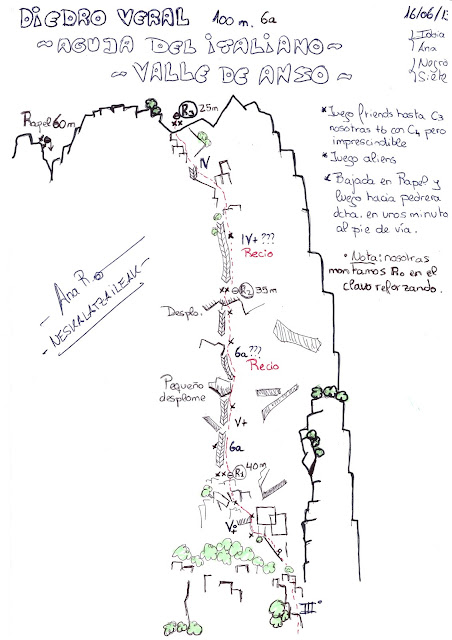 DIEDRO VERAL 100 m. 6a
~AGUJA DEL ITALIANO~
~VALLE DE ANSO~
16/06/13
Idoia
Ana
Negro
* Juego friends hasta C3
nosotras tb con C4 pero
imprescindible
* Juego aliens
* Bajada en Rapel y
luego hacia pedrera
dcha. en unos minuto
al pie de vía.
• Nota: nosotras
montamos Ro en el
clavo reforzando.
Rapel 60m
R3 25m
IV
IV+ ???
Recio
R2 35m
Desplo.
6a ???
Recio
Pequeño
desplome
V+
6a
R1 40m
V+
- Ana R.
- NESKALATZAILEAK -